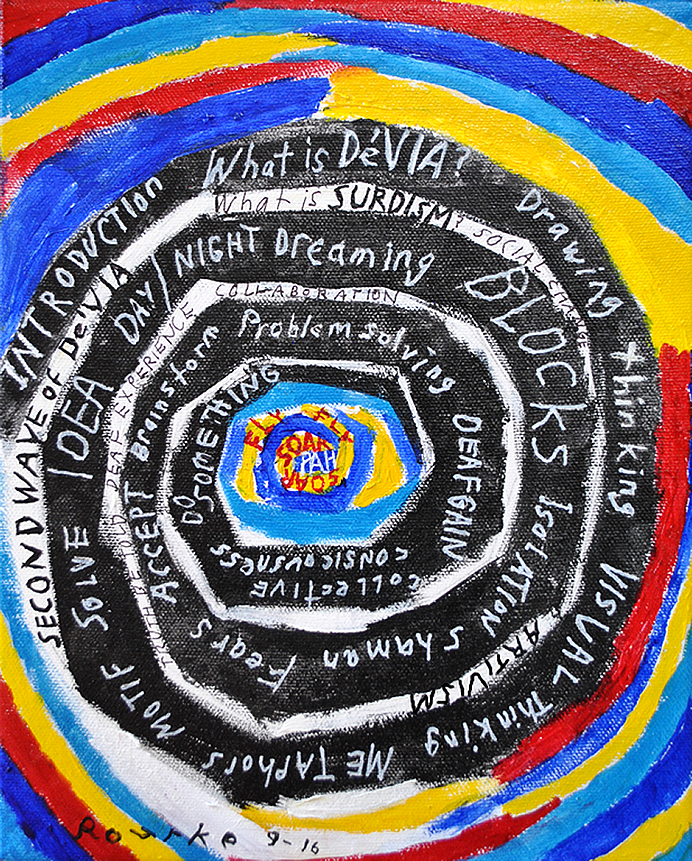 INTRODUCTION
What is DéVIA?
Drawing thinking
VISUAL Thinking
METAphors
MOTIF
SOLVE
IDEA
DAY/NIGHT Dreaming
BLOCKS
IsolATION
shaman
Fears
ACCEPT
Brainstorm
Problem solving
DEAFGAIN
COLLECTIVE
CONSICOUSNESS
DO
SOMETHING
SECOND WAVE OF De'VIA
What is SURDISM?
SOCIAL CHANGE
ARTIVISM
DEAF EXPERIENCE
COLLABORATION
FLY FLY
SOAR
PAH
SOAR
Rourke 9-16